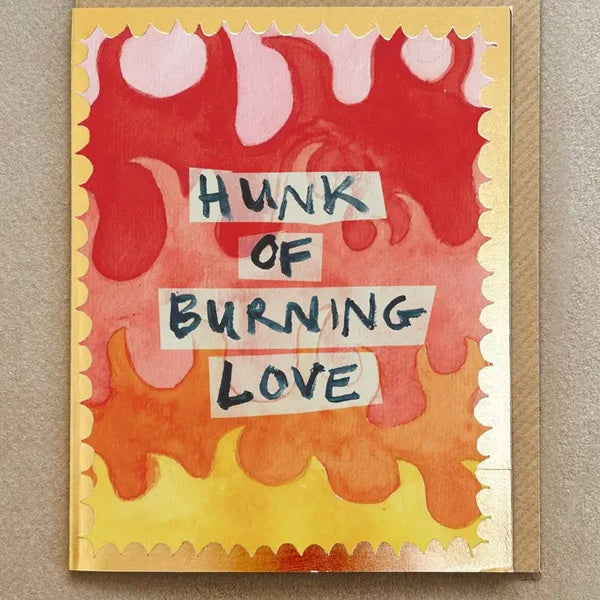 HUNK
OF
BURNING
LOVE